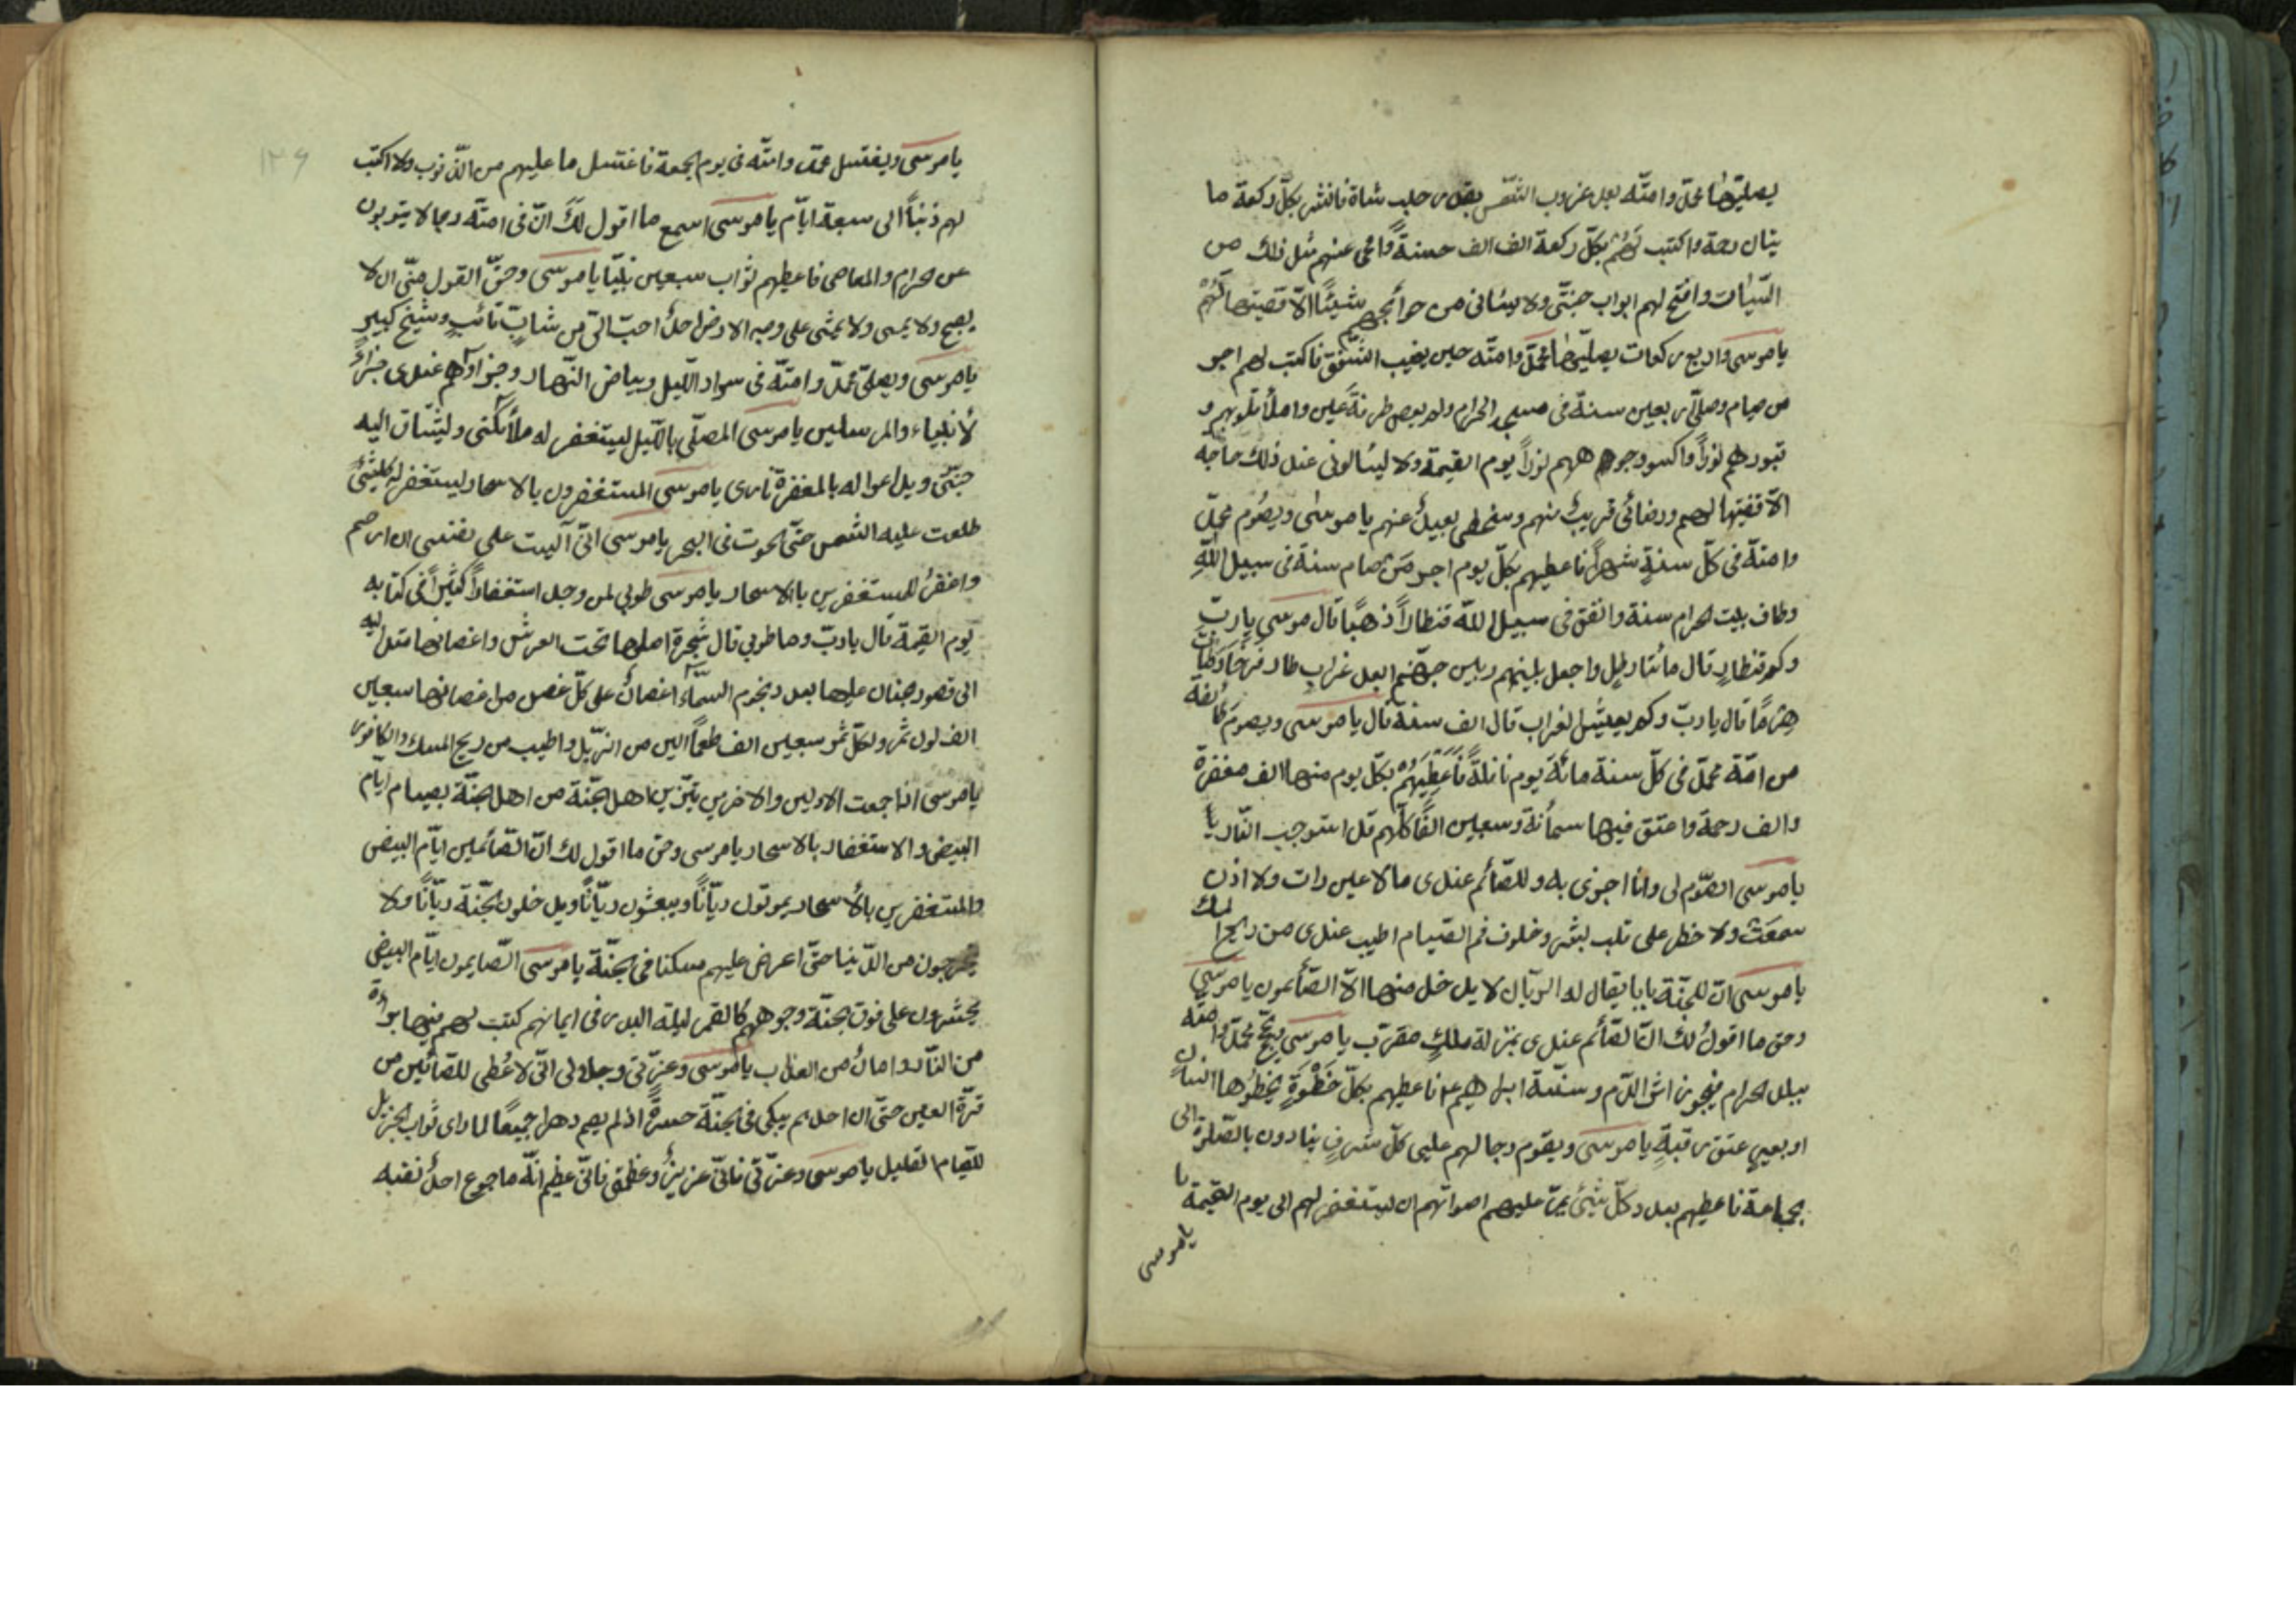 يصليها محمّد وامّته بعد غروب الشّمس بقدر حلب شاة فانشر بكلّ ركعة ما
ينال رحمة واكتب لهم بكلّ ركعة الف الف حسنةً وامحى عنهم مثل ذلك من
السّيّات وافتح لهم ابواب جنّتى ولا يسئلنى من حوائجهم شيئًا الّا قضيتها لهم
يا موسى واربع ركعات يصليها محمّد وامّته حين يغيب الشّفق فاكتب لهم اجر
من صام وصلّى اربعين سنة فى مسجد الحرام ولم يعص طرفة عين واملأ قلوبهم و
قبورهم نوراً واكسو وجوههم نوراً يوم القيمة ولا ليسالونى عند ذلك حاجة
الّا قضيتها لهم ورضائى قريبٌ منهم وسخطى بعيدٌ عنهم يا موسى ويصُوم محمّد
وامّته فى كلّ سنةٍ شهراً فاعطيهم بكلّ يوم اجر من صام سنة فى سبيل اللّه
وطاف بيت الحرام سنة وانفق فى سبيل اللّه قنطاراً ذهبًا قال موسى يا ربّ
وكم قنطارٍ قال مائتا رطلٍ واجعل بينهم وبين جهنّم ابعد غرابٍ طار فرخًا وطات
هرمًا قال يا ربّ وكم يعيش الغراب قال الف سنة قال يا موسى ويصوم طائفة
من امّة محمّد فى كلّ سنة مائة يوم نافلةً فاعطيهم بكلّ يوم منها الف مغفرة
والف رحمة واعتق فيها ستمائة وسبعين الفًا كلّهم قد استوجب النّار يا
يا موسى الصّوم لى وانا اجزى به وللصّائم عندى ما لا عين رات ولا اذن
سمعت ولا خطر على قلب بشر وخلوف فم الصّيام اطيب عندى من ريح المسك
يا موسى انّ للجنّة بابا يقال له الريّان لا يدخل منها الّا الصّائمون يا موسى
وحق ما اقولُ لك انّ الصّائم عندى بمنزلة ملكٍ مقرّب يا موسى يحجّ محمّد وامّته
ببلد الحرام فيجون اثر الدّم وسنّة ابراهيم ع م فاعطيهم بكلّ خطوةٍ يخطوها الانسان
اربعين عتق رقبةٍ يا موسى ويقوم رجالهم على كلّ شرفٍ ينادون بالصّلوة الى
بجماعة فاعطيهم بعدد كلّ شيئ يمرّ عليهم اصواتهم ان ليستغفر لهم الى يوم القيمة يا
يا موسى
١٣٩
يا موسى ويغتسل محمّد وامّته فى يوم الجمعة فاغتسل ما عليهم من الذّنوب ولا اكتب
لهم ذنباً الى سبعة ايّام يا موسى اسمع ما اقول لك انّ فى امّته رجالا يتوبون
عن الحرام والمعاصى فاعطيهم ثواب سبعين نبيّا يا موسى وحقّ القول منّى ان لا
يصبح ولا يمسى ولا يمشى على وجه الارض احدٌ احبّ الىّ من شابّ تائبٍ وشيخ كبيرٍ
يا موسى ويصلّى محمّد وامّته فى سواد اللّيل وبياض النّهار وجزاؤهم عندى جزاءُ
لأنبياء والمرسلين يا موسى المصلّى باللّيل ليستغفر له ملأئكتى وليشتاق اليه
جنّتى ويدعوا له بالمغفرة نارى يا موسى المستغفرون بالاسحار ليستغفر له كلّ شئ
طلعت عليه الشمس حتّى الحوت فى البحر يا موسى انّى آليت على نفسى ان ارحم
واغفرُ للمستغفرين بالاسحار يا موسى طوبي لمن وجد استغفاراً كثيراً فى كتابه
يوم القيمة قال يا ربّ وما طوبي قال شجرة اصلها تحت العرش واغصانها متدلّيه
الى قصور الجنان عليها بعدد نجوم السّمآء اغصانٌ على كلّ غصن من اغصانها سبعين
الف لون ثمر ولكلّ ثمر سبعين الف طعماً الين من الزّبد واطيب من ريح المسك والكافور
يا موسى اذا جمعت الاولين والاخرين يتزيّن اهل الجنّة من اهل الجنّة بصيام ايّام
البيض والاستغفار بالاسحار يا موسى وحق ما اقول لك انّ الصّائمين ايّام البيض
والمستغفرين بالأسحار يموتون ريّاناً ويبعثون ريّاناً ويدخلون الجنّة ريّاناً ولا
يخرجون من الدّنيا حتّى اعرض عليهم مسكنا فى الجنّة يا موسى الصّايمون ايّام البيض
يحشرون على فوق الجنّة وجوههم كالقمر ليلة البدر فى ايمانهم كتبت لهم فيها براءة
من النّار وامانٌ من العذاب يا موسى وعزّتى وجلالى انّى لاعُطى للصّائمين من
قرّة العين حتّى ان احدهم يبكى فى الجنّة حسرةً اذ لم يصم دهرا جميعًا لما راى ثواب الجزيل
للصّيام القليل يا موسى وعزّتى فانّى عزيزٌ وعظمتى فانّى عظيم انّه ما جوع احدٌ نفسه